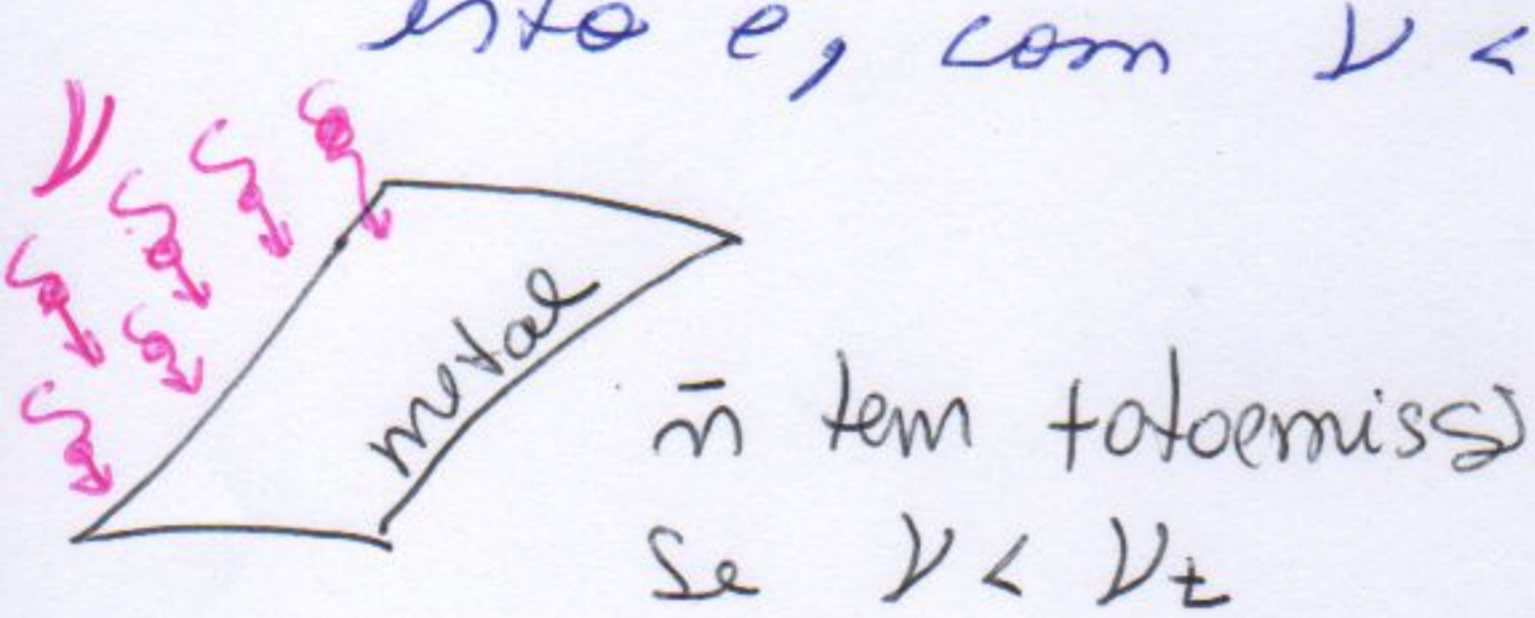 isto e, com ν <
ν
metal
n̄ tem fotoemiss
Se ν < νt